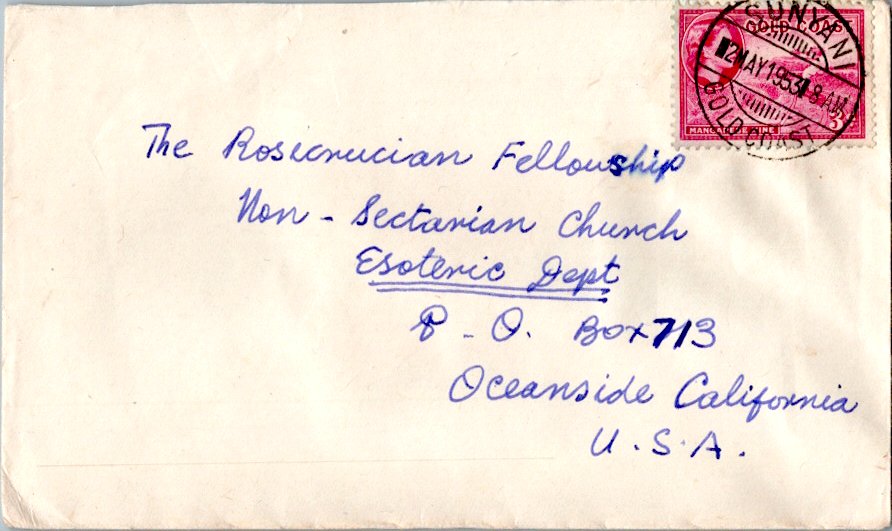 SUNYANI
GOLD COAST
2 MAY 1953 8 AM
GOLD COAST
MANGANESE MINE
3
The Rosicrucian Fellowship
Non - Sectarian Church
Esoteric Dept
P - O. Box 713
Oceanside California
U. S. A.